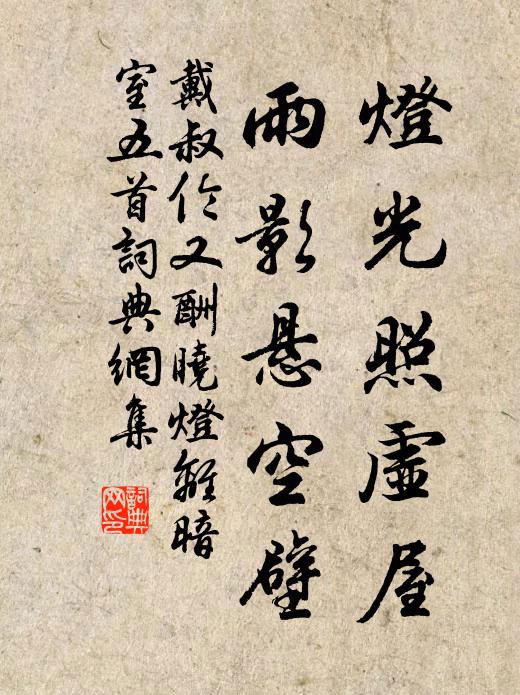 燈光照虛屋
雨影悬空壁
戴叔伦又酬曉燈離暗
室五首詞典網集
詞典
网印